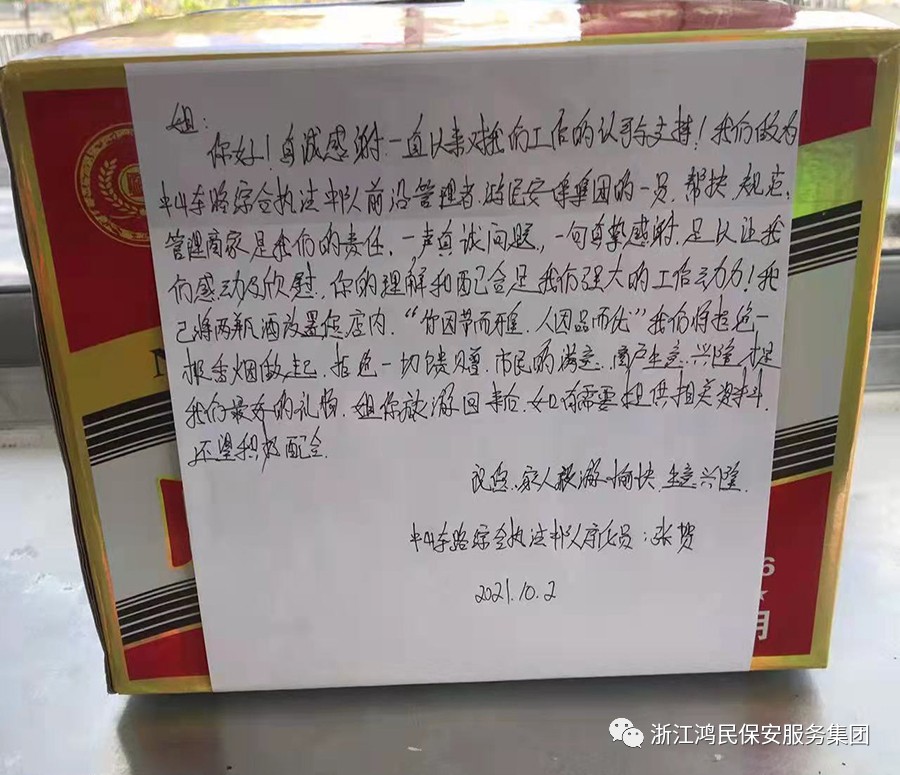 姐：
你好！真诚感谢一直以来对我们工作的认可与支持！我们做为
中山东路综合执法中队前沿管理者，鸿民安保集团的一员，帮扶、规范、
管理商家是我们的责任，一声真诚问题，一句真挚感谢，足以让我
们感动及欣慰，你的理解和配合是我们强大的工作动力！我
已将两瓶酒放置您店内，“竹因节而雅，人因品而化”我们将拒绝一
根香烟做起，拒绝一切馈赠，市民的满意，商户生意兴隆，才是
我们最好的礼物，姐你旅游回来后，如有需要提供相关资料，
还望积极配合。
祝您、家人旅游愉快，生意兴隆。
中山东路综合执法中队序化员：张贺
2021.10.2
6
月
浙江鸿民保安服务集团